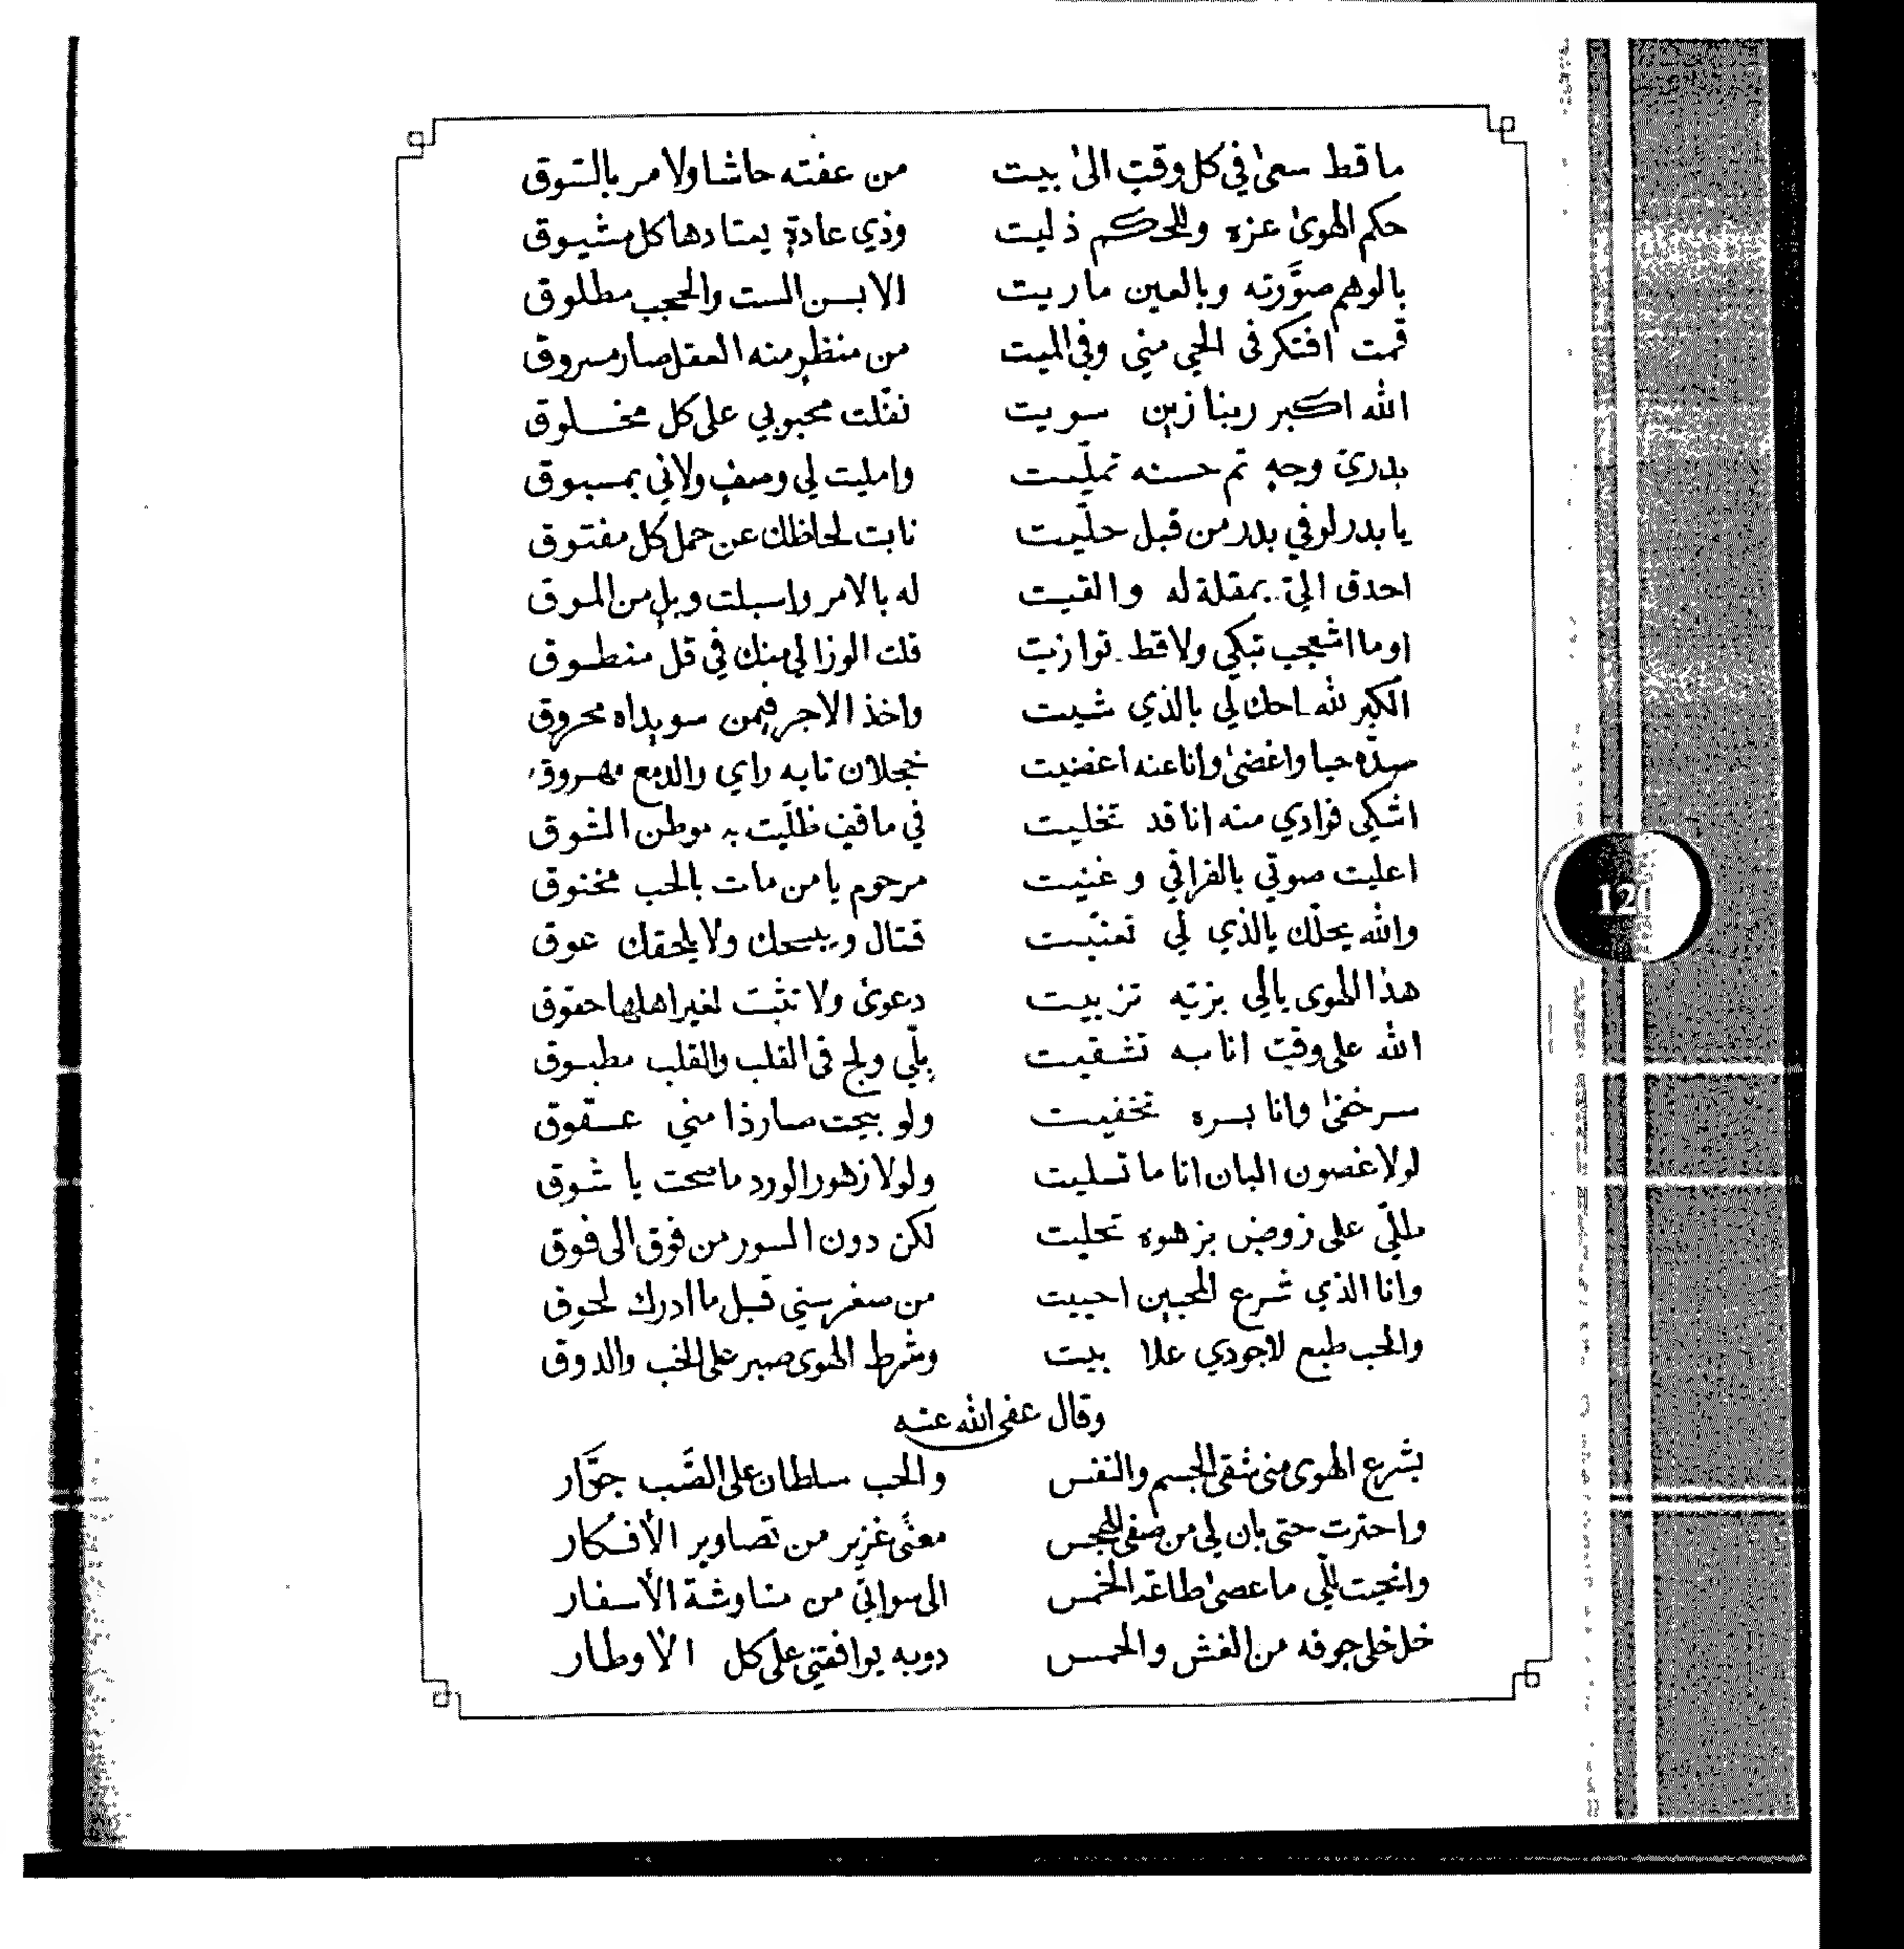 ما قط سعىٰ في كل وقتٍ الىٰ بيت من عفته حاشا ولا مر بالسوق
حكم الهوىٰ عزه وللحكم ذليت وذي عادةٍ يعتادها كل مشيوق
بالوهم صوَّرته وبالعين ماريت الا بسن الست والحجب مطلوق
قمت افتكر في الحي مني وفي الميت من منظرٍ منه العقل صار مسروق
الله اكبر ربنا زين سويت نفّلت محبوبي على كل مخلوق
بدريّ وجهٍ تم حسنه تملّيت وامليت لي وصفٍ ولاني بمسبوق
يا بدر لو في بدر من قبل حلّيت نابت لحاظك عن حمل كل مفتوق
احدق اليّ بمقلة له والقيت له بالامر واسبلت وبلٍ من الموق
اوما اشعجب تبكي ولا قط توازيت قلت الوزا لي منك في قل منطوق
الكبر لله احك لي بالذي شيت واخذ الاجر فيمن سويداه محروق
صدّه حيا واغضىٰ وانا عنه اغضيت خجلان تايه راي والدمع مهروق
اشكي فوادي منه انا قد تخليت في ماقفٍ ظلّيت به موطن الشوق
اعليت صوتي بالفراقي وغنيت مرحوم يا من مات بالحب مخنوق
والله يحلّك يالذي لي تعنّيت قتال ويبيحك ولا يلحقك عوق
هذا الهوى يالي بزيّه تزييت دعوىٰ ولا تثبت لغير اهلها حقوق
الله على وقتٍ انا به تشقيت بلّي ولج في القلب والقلب مطبوق
سر خفىٰ وانا بسره تخفيت ولو بيحت صار ذا مني عقوق
لولا غصون البان انا ما تسليت ولولا زهور الورد ما صحت يا شوق
مللّي على روضٍ بزهوه تحليت لكن دون السور من فوق الى فوق
وانا الذي شرع المحبين احييت من صغر سني قبل ما ادرك لحوق
والحب طبع لاجودي علا بيت وشرط الهوى صبر على الخب والدوق
وقال عفى الله عنه
بشرع الهوى منى شقى الجسم والنفس والحب سلطان على الصَّب جوَّار
واحترت حتى بان لي من صفى الهجس معنًى غزير من تصاوير الأفكار
وانجيت للّي ما عصىٰ طاعة الخمس الى سواتي من مناوشة الأسفار
خل خلى جوفه من الغش والحمس دوبه يوافقني على كل الأوطار
120